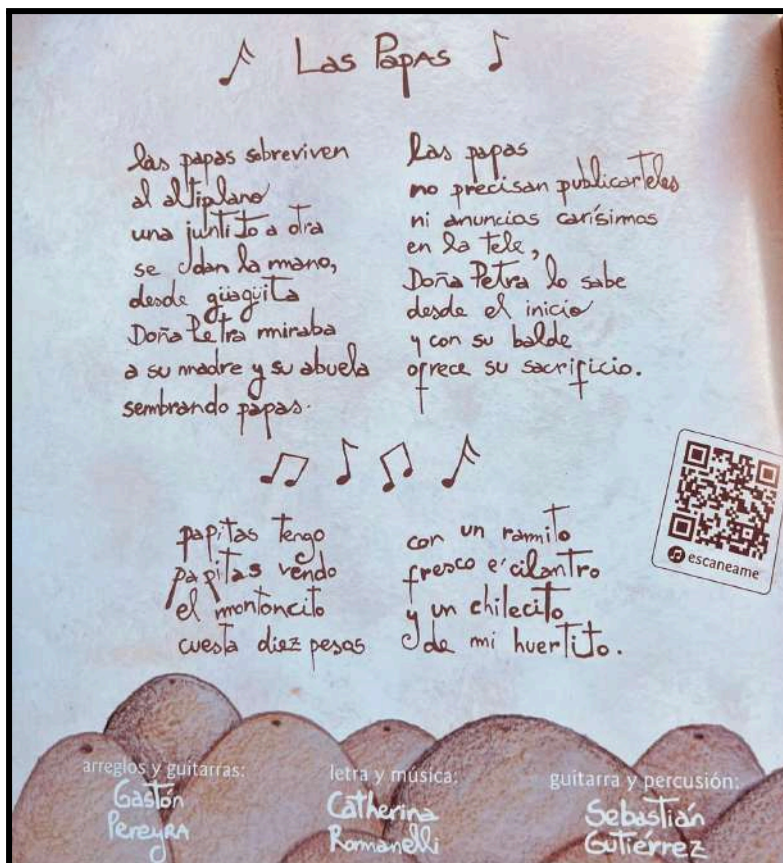 Las Papas
las papas sobreviven
al altiplano
una juntito a otra
se dan la mano,
desde güagüita
Doña Petra miraba
a su madre y su abuela
sembrando papas.
Las papas
no precisan publicarteles
ni anuncios carísimos
en la tele,
Doña Petra lo sabe
desde el inicio
y con su balde
ofrece su sacrificio.
papitas tengo
papitas vendo
el montoncito
cuesta diez pesos
con un ramito
fresco e' cilantro
y un chilecito
de mi huertito.
escaneame
arreglos y guitarras:
Gastón
Pereyra
letra y música:
Catherina
Romanelli
guitarra y percusión:
Sebastián
Gutiérrez